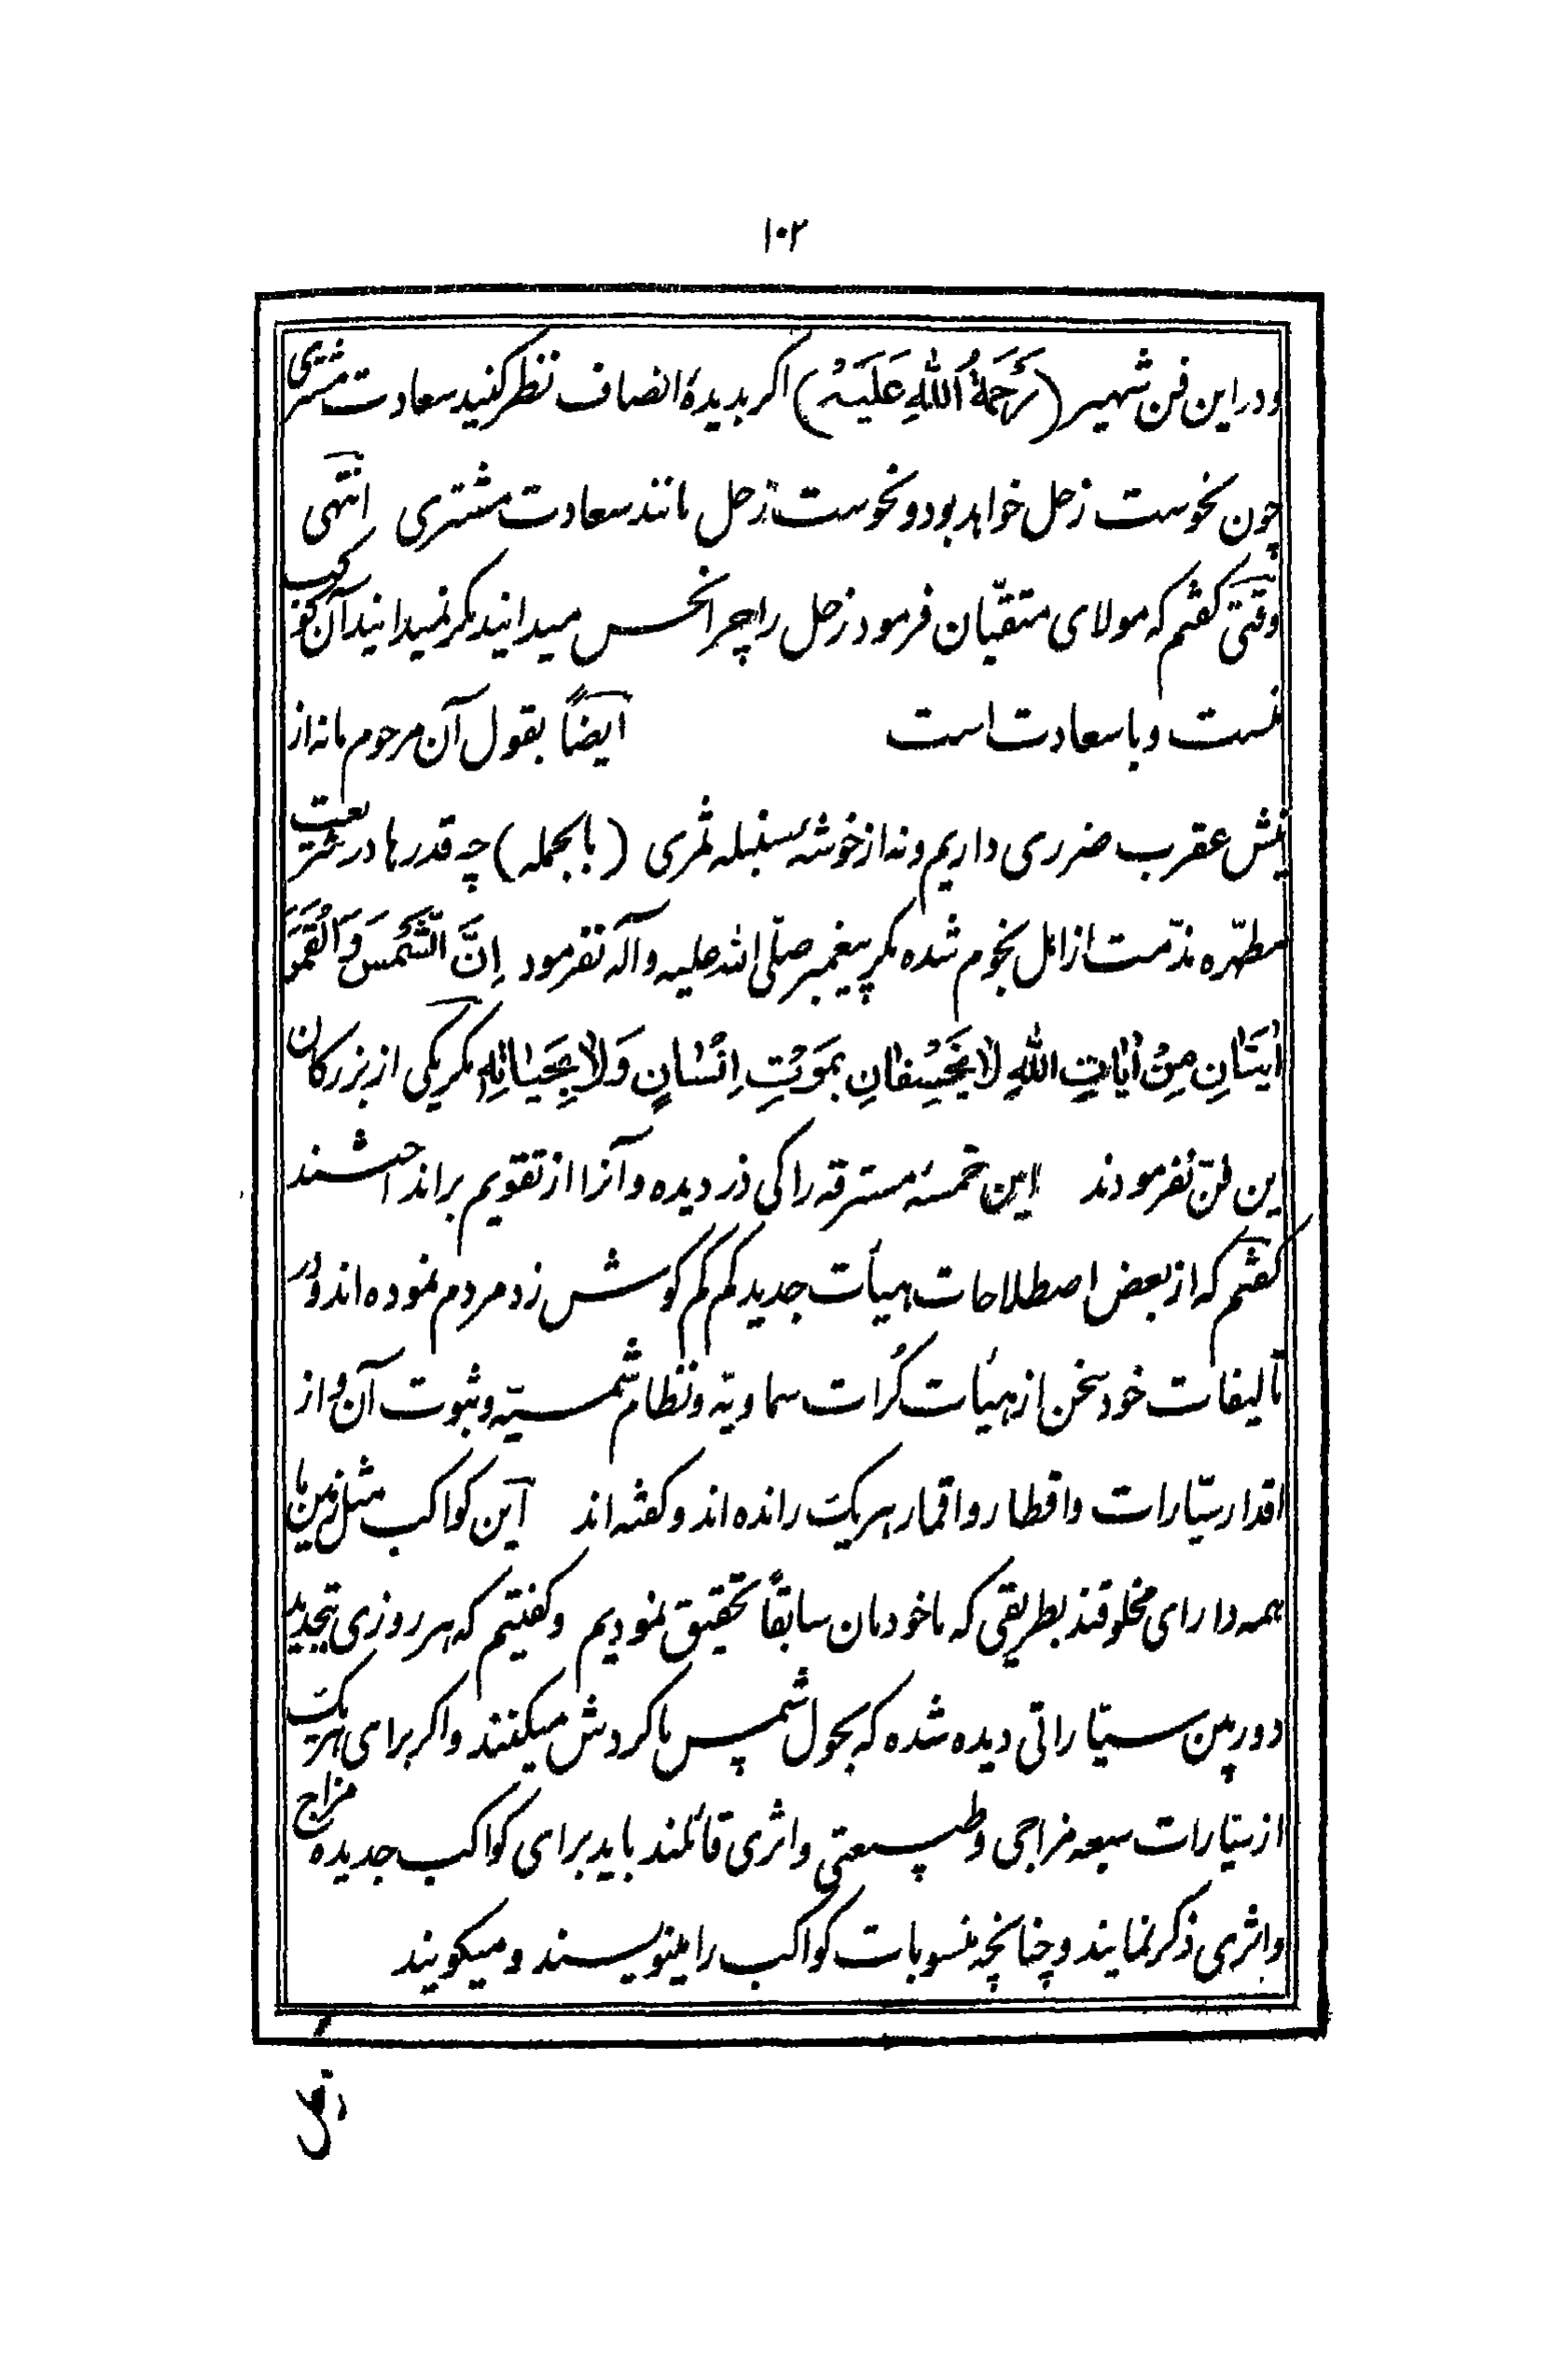 ۱۰۲
و در این فن شهیر (رَحْمَةُ اللهِ عَلَیْهِ) اکر بدیدۀ انصاف نظر کنید سعادت مشتری
چون نحوست زحل خواهد بود و نحوست زحل مانند سعادت مشتری انتهی
وقتی کفتم که مولای متقیان فرمود زحل را چرا نحس میدانید مکر نمیدانید آن کوکب
منست و با سعادت است ایضاً بقول آن مرحوم ما نه از
نیش عقرب ضرری داریم و نه از خوشۀ سنبله ثمری (بالجمله) چه قدرها در شریعت
مطهّره مذمّت از اهل نجوم شده مکر پیغمبر صلّی الله علیه و آله نفرمود اِنَّ الشَّمْسَ وَ الْقَمَرَ
اٰیَتَانِ مِنْ اٰیَاتِ اللهِ لَا یَخْسِفَانِ بِمَوْتِ اِنْسَانٍ وَلَا بِحَیَاتِهِ مکر یکی از بزرکان
این فنّ نفرمودند این خمسۀ مسترقه را کی دزدیده و آنرا از تقویم برانداختند
کفتم که از بعض اصطلاحات هیأت جدید کم کم کوش زد مردم نموده اند و در
تألیفات خود سخن از هیأت کُرات سماویّه و نظام شمسیّه و ثبوت آن و از
اقدار سیّارات و اقطار و اقمار هریک رانده اند و کفته اند این کواکب مثل زمین ما
همه دارای مخلوقند بطریقی که ما خودمان سابقاً تحقیق نمودیم و کفتیم که هر روزی بتجدید
دوربین سیّاراتی دیده شده که بحول شمس ما کردش میکنند و اکر برای هریک
از سیّارات سبعه مزاجی و طبیعتی و اثری قائلند باید برای کواکب جدیده مزاج
و اثری ذکر نمایند و چنانچه منسوبات کواکب را مینویسند و میکویند